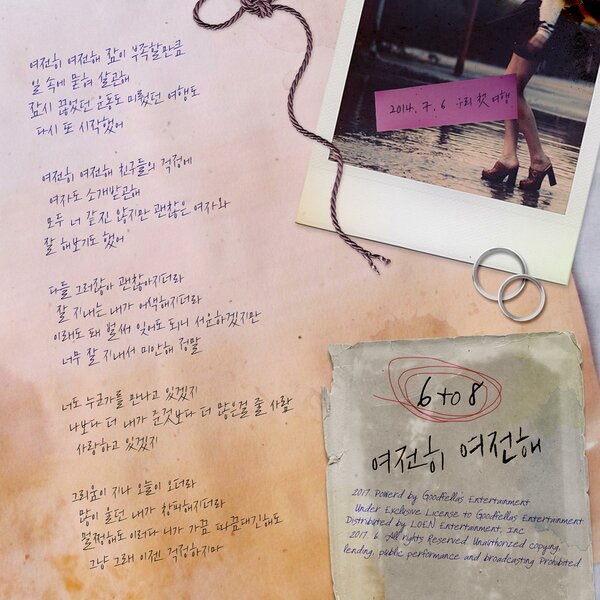 여전히 여전해 잠이 부족할만큼
일 속에 묻혀 살곤해
잠시 끊었던 운동도 미뤘던 여행도
다시 또 시작했어
여전히 여전해 친구들의 걱정에
여자도 소개받곤해
모두 너 같진 않지만 괜찮은 여자와
잘 해보기도 했어
다들 그러잖아 괜찮아지더라
잘 지내는 내가 어색해지더라
이래도 돼 벌써 잊어도 되니 서운하겠지만
너무 잘 지내서 미안해 정말
너도 누군가를 만나고 있겠지
나보다 더 내가 준것보다 더 많은걸 줄 사람
사랑하고 있겠지
그리움이 지나 오늘이 오더라
많이 울던 내가 창피해지더라
멀쩡해도 이러다 니가 가끔 따끔대긴해도
그냥 그래 이젠 걱정하지마
2014. 7. 6 우리 첫 여행
6 to 8
여전히 여전해
2017. Powerd by Goodfellas Entertainment
Under Exclusive License to Goodfellas Entertainment
Distributed by LOEN Entertainment, Inc
2017. 6. All rights Reserved. Unauthorized copying,
lending, public performance and broadcasting Prohibited.